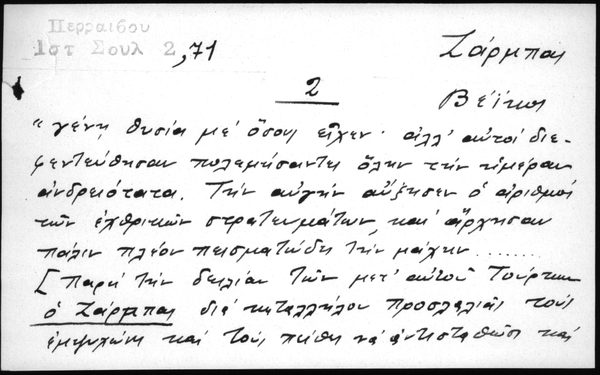 Περραιβου
1στ Σουλ 2,71
Ζάρμπας
2
Βέϊκος
"γένῃ θυσία μέ ὅσους εἶχεν· ἀλλ' αὐτοί διε-
φεντεύθησαν πολεμήσαντες ὅλην τήν ἡμέραν
ἀνδρειότατα. Τήν αὐγήν αὔξησεν ὁ ἀριθμός
τῶν ἐχθρικῶν στρατευμάτων, καί ἄρχησαν
πάλιν πλέον πεισματώδη τήν μάχην........
[Παρά τήν δειλίαν τῶν μετ' αὐτοῦ Τούρκων
ὁ Ζάρμπας διά καταλλήλου προσλαλιᾶς τούς
ἐμψυχώνει καί τούς πείθει νά ἀντισταθῶσι καί